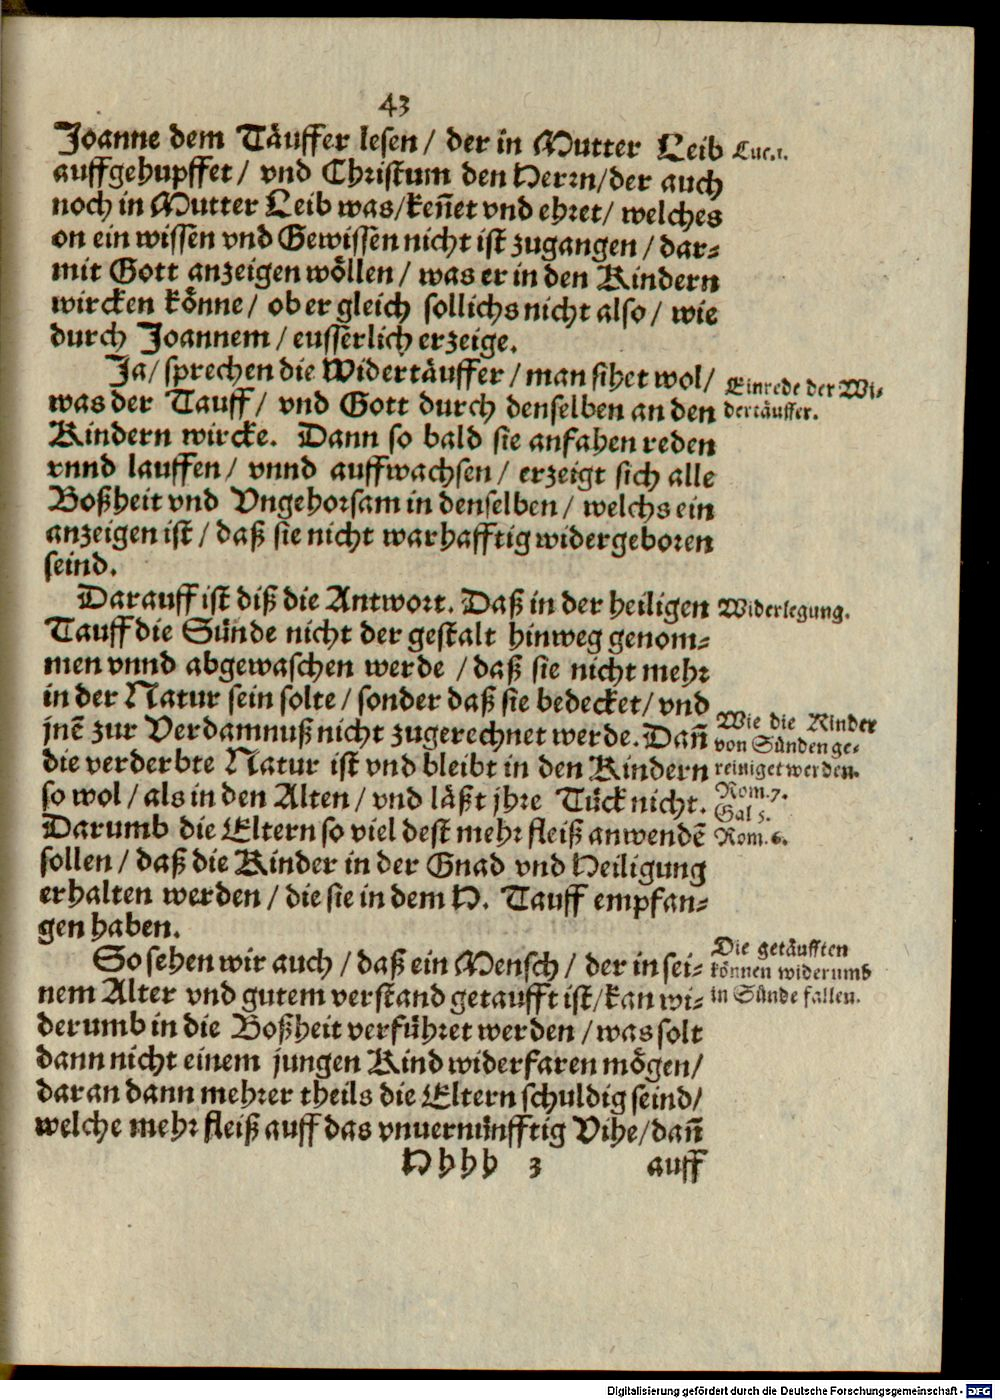 43
Joanne dem Täuffer lesen / der in Mutter Leib
Luc.1.
auffgehupffet / vnd Christum den Herrn / der auch
noch in Mutter Leib was / keñet vnd ehret / welches
on ein wissen vnd Gewissen nicht ist zugangen / dar-
mit Gott anzeigen wöllen / was er in den Kindern
wircken könne / ob er gleich sollichs nicht also / wie
durch Joannem / eusserlich erzeige.
Ja / sprechen die Widertäuffer / man sihet wol /
Einrede der Wi-
was der Tauff / vnd Gott durch denselben an den
dertäuffer.
Kindern wircke. Dann so bald sie anfahen reden
vnnd lauffen / vnnd auffwachsen / erzeigt sich alle
Boßheit vnd Vngehorsam in denselben / welchs ein
anzeigen ist / daß sie nicht warhafftig widergeboren
seind.
Darauff ist diß die Antwort. Daß in der heiligen
Widerlegung.
Tauff die Sünde nicht der gestalt hinweg genom-
men vnnd abgewaschen werde / daß sie nicht mehr
in der Natur sein solte / sonder daß sie bedecket / vnd
jnē zur Verdamnuß nicht zugerechnet werde. Dañ
Wie die Kinder
von Sünden ge-
die verderbte Natur ist vnd bleibt in den Kindern
reiniget werden.
so wol / als in den Alten / vnd läßt jhre Tück nicht.
Rom.7.
Gal 5.
Darumb die Eltern so viel dest mehr fleiß anwendē
Rom. 6.
sollen / daß die Kinder in der Gnad vnd Heiligung
erhalten werden / die sie in dem H. Tauff empfan-
gen haben.
So sehen wir auch / daß ein Mensch / der in sei-
Die getäufften
können widerumb
nem Alter vnd gutem verstand getaufft ist / kan wi-
in Sünde fallen.
derumb in die Boßheit verführet werden / was solt
dann nicht einem jungen Kind widerfaren mögen /
daran dann mehrer theils die Eltern schuldig seind /
welche mehr fleiß auff das vnuernünfftig Vihe / dañ
Hhhh 3
auff
Digitalisierung gefördert durch die Deutsche Forschungsgemeinschaft - DFG